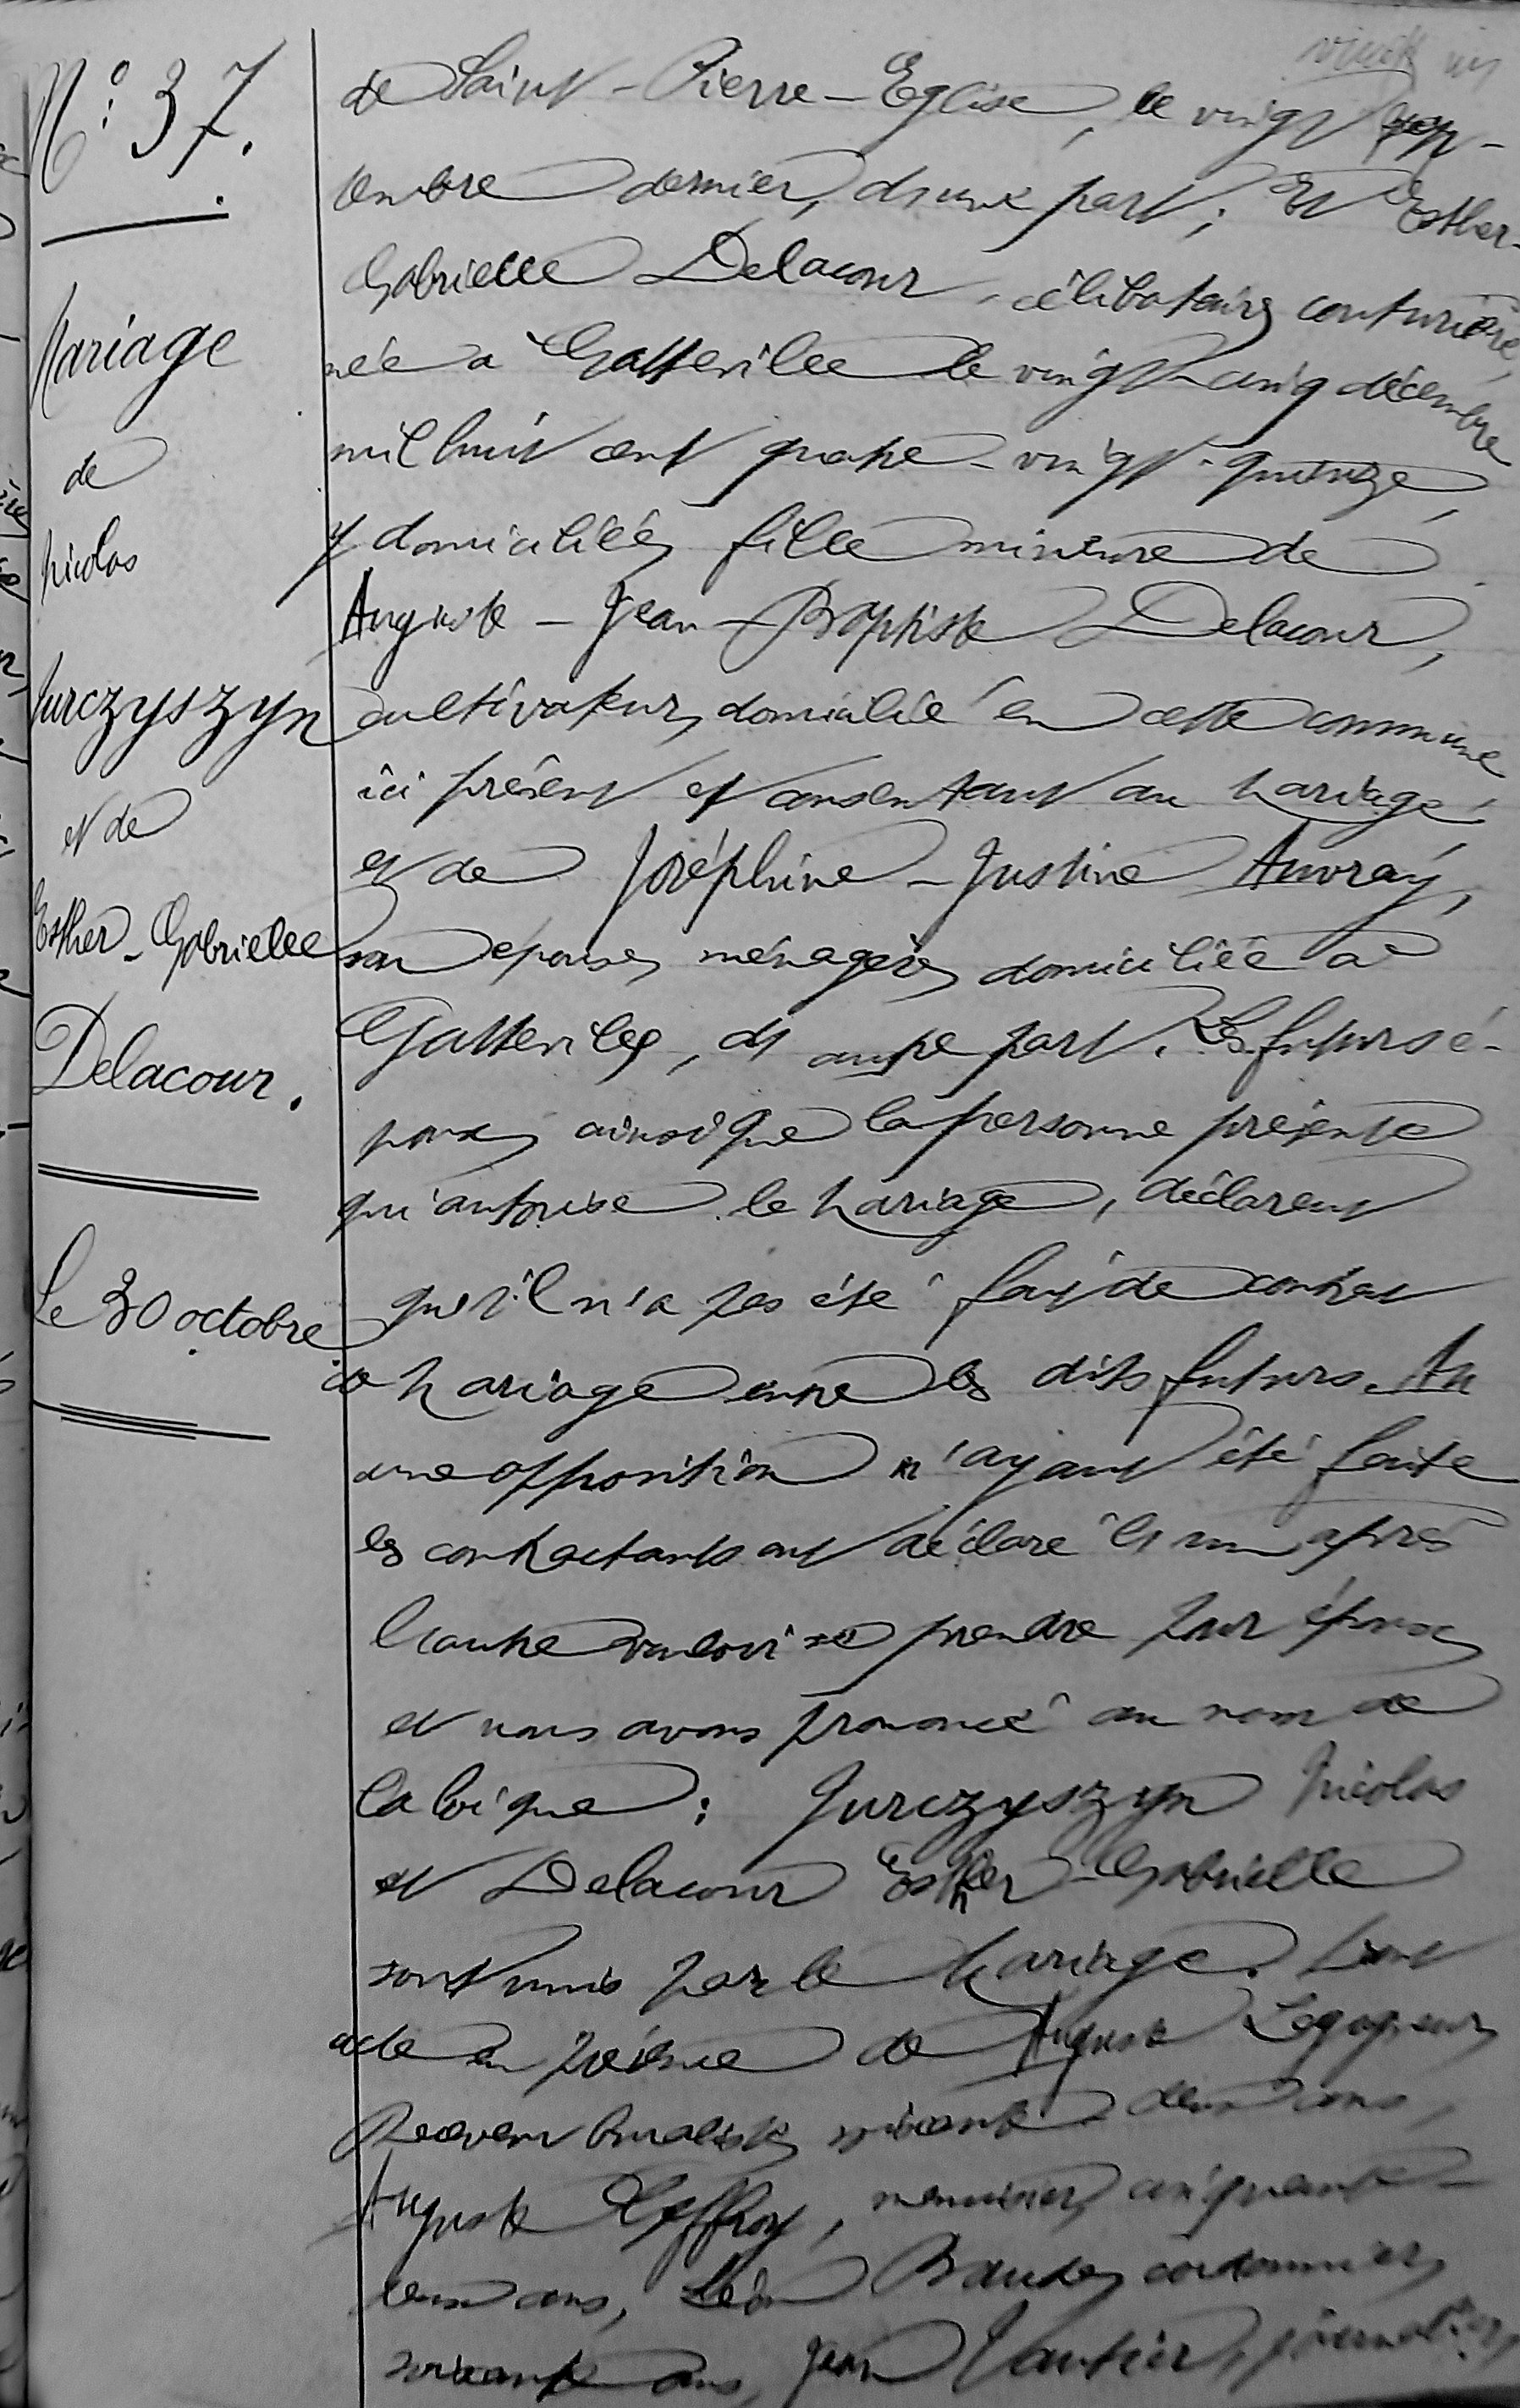 N° 37.
Mariage
de
Nicolas
Jurczyszyn
et de
Esther-Gabrielle
Delacour.
Le 30 octobre
de Saint-Pierre-Eglise, le vingt sep-
tembre dernier, d'une part; Et Esther-
Gabrielle Delacour, célibataire, couturière,
née à Gatteville le vingt-cinq décembre
mil huit cent quatre-vingt-quinze,
y domiciliée, fille mineure de
Auguste-Jean-Baptiste Delacour,
cultivateur, domicilié en cette commune
ici présent et consentant au mariage,
et de Joséphine-Justine Auvray,
son épouse, ménagère, domiciliée à
Gatteville, d'autre part. Les futurs é-
poux, ainsi que la personne présente
qui autorise le mariage, déclarent
qu'il n'a pas été fait de contrat
de mariage entre les dits futurs. Au
cune opposition n'ayant été faite
les contractants ont déclaré l'un après
l'autre vouloir se prendre pour époux
et nous avons prononcé au nom de
la loi que: Jurczyszyn Nicolas
et Delacour Esther-Gabrielle
sont unis par le mariage. Dont
acte en présence de Auguste Legagneur,
Receveur buraliste, soixante-deux ans,
Auguste Geffroy, menuisier, cinquante-
deux ans, Léon Baude, cordonnier,
soixante ans, Jean Vautier, journalier,